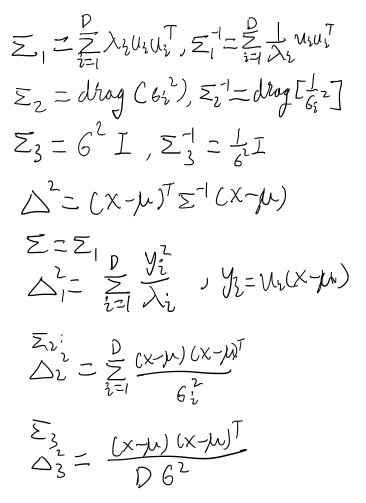 Σ₁ = Σᵢ₌₁ᴰ λᵢuᵢuᵢᵀ, Σ₁⁻¹ = Σᵢ₌₁ᴰ 1/λᵢ uᵢuᵢᵀ
Σ₂ = diag(σᵢ²), Σ₂⁻¹ = diag[1/σᵢ²]
Σ₃ = σ² I, Σ₃⁻¹ = 1/σ² I
Δ² = (x-μ)ᵀ Σ⁻¹ (x-μ)
Σ = Σ₁
Δ₁² = Σᵢ₌₁ᴰ yᵢ²/λᵢ, yᵢ = uᵢ(x-μ)
Σ₂:
Δ₂² = Σᵢ₌₁ᴰ (x-μ)(x-μ)ᵀ/σᵢ²
Σ₃
Δ₃² = (x-μ)(x-μ)ᵀ/D σ²